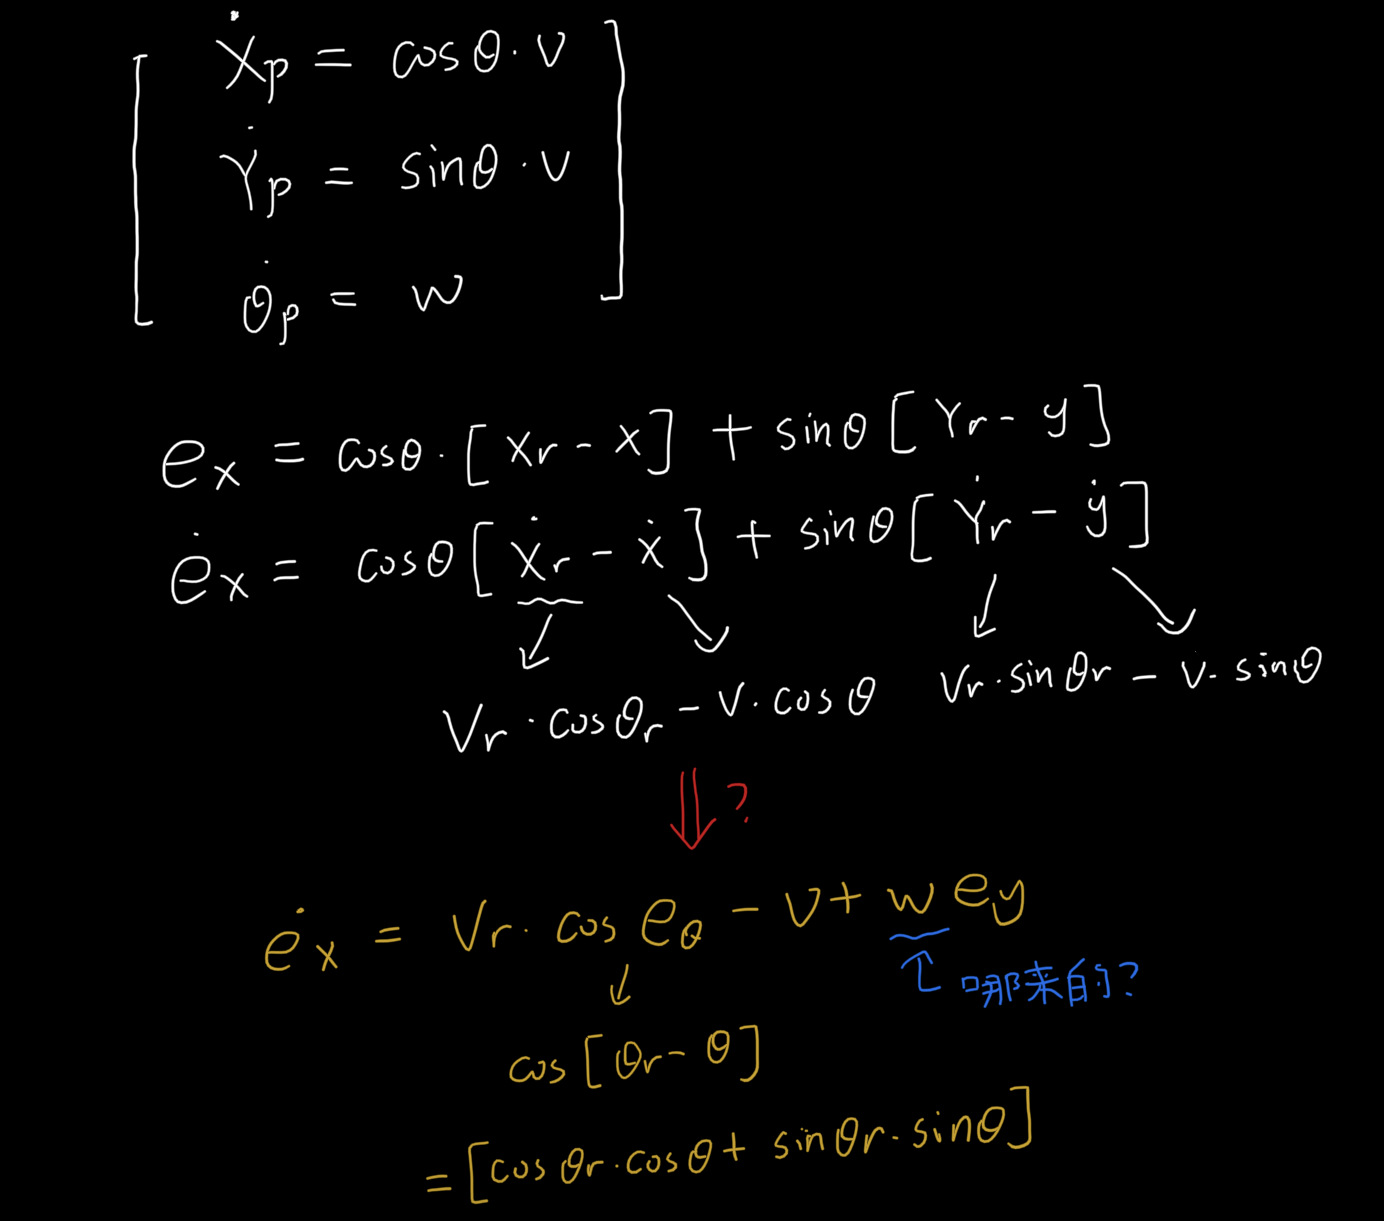 Ẋp = cosθ · v
Ẏp = sinθ · v
θ̇p = w
ex = cosθ · [xr - x] + sinθ [Yr - y]
ėx = cosθ [ẋr - ẋ] + sinθ [Ẏr - ẏ]
Vr · cosθr - v · cosθ Vr · sinθr - v · sinθ
?
ėx = Vr · cos eθ - v + w ey
哪来的?
cos [θr - θ]
= [cosθr · cosθ + sinθr · sinθ]